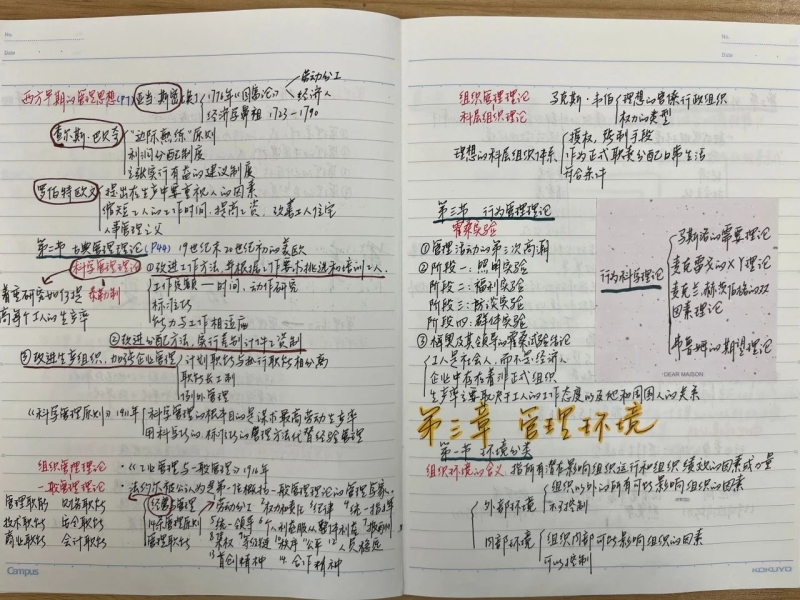 No.
Date
西方早期的管理思想(P37) 亚当·斯密(英) 1776年《国富论》 劳动分工
经济人
经济学鼻祖 1723-1790
查尔斯·巴贝奇 "边际熟练"原则
利润分配制度
主张实行有益的建议制度
罗伯特欧文 提出在生产中要重视人的因素
缩短工人的工作时间、提高工资、改善工人住宅
人事管理之父
第二节 古典管理理论(P44) 19世纪末20世纪初的美欧
科学管理理论 ①改进工作方法,并根据工作要求挑选和培训工人
着重研究如何提 泰勒制 工作定额—时间、动作研究
高单个工人的生产率 标准化
能力与工作相适应
②改进分配方法,实行差别计件工资制
③改进生产组织,加强企业管理 计划职能与执行职能相分离
职能长工制
例外管理
《科学管理原则》1911年 科学管理的根本目的是谋求最高劳动生产率
用科学化的、标准化的管理方法代替经验管理
组织管理理论 ·《工业管理与一般管理》1916年
一般管理理论 ·法约尔被公认为是第一位概括一般管理理论的管理学家。
管理职能 财务职能 经营与管理 劳动分工 权力和责任 纪律 统一指挥
技术职能 安全职能 14条管理原则 统一领导 个人利益服从整体利益 报酬
商业职能 会计职能 管理职能 集权 等级链 秩序 公平 人员稳定
首创精神 合作精神
Campus
No.
Date
组织管理理论 马克斯·韦伯 理想的官僚行政组织
科层组织理论 权力的类型
理想的科层组织体系 授权,强制手段
作为正式职责分配日常生活
符合条件
第三节 行为管理理论
霍桑实验
①管理活动的第三次高潮
②阶段一:照明实验
阶段二:福利实验
阶段三:访谈实验
阶段四:群体实验
③梅奥及其领导的霍桑试验结论
工人是社会人,而不是经济人
企业中存在着非正式组织
生产率主要取决于工人的工作态度以及他和周围人的关系
行为科学理论 马斯洛的需要理论
麦克雷戈的XY理论
麦克兰,赫茨伯格的双
因素理论
弗鲁姆的期望理论
DEAR MAISON
第三章 管理环境
第一节 环境分类
组织环境的含义:指所有潜在影响组织运行和组织绩效的因素或力量
外部环境 组织以外的所有可能影响组织的因素
不可控制
内部环境 组织内部可能影响组织的因素
可以控制
KOKUYO